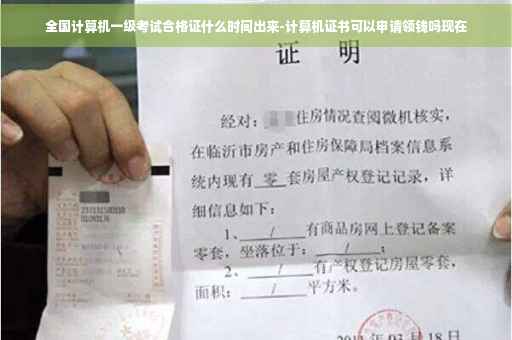 全国计算机一级考试合格证什么时间出来-计算机证书可以申请领钱吗现在
证 明
经对：住房情况查阅微机核实，
在临沂市房产和住房保障局档案信息系
统内现有 零 套房屋产权登记记录，详
细信息如下：
1、 / 有商品房网上登记备案
零套，坐落位于： / ；
2、 / 有产权登记房屋零套，
面积： / 平方米。
03 月 18 日